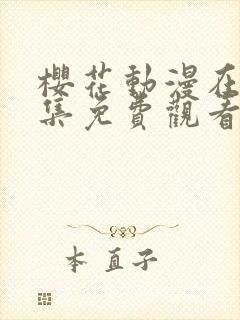 櫻花動漫在
集免費觀看
本直子